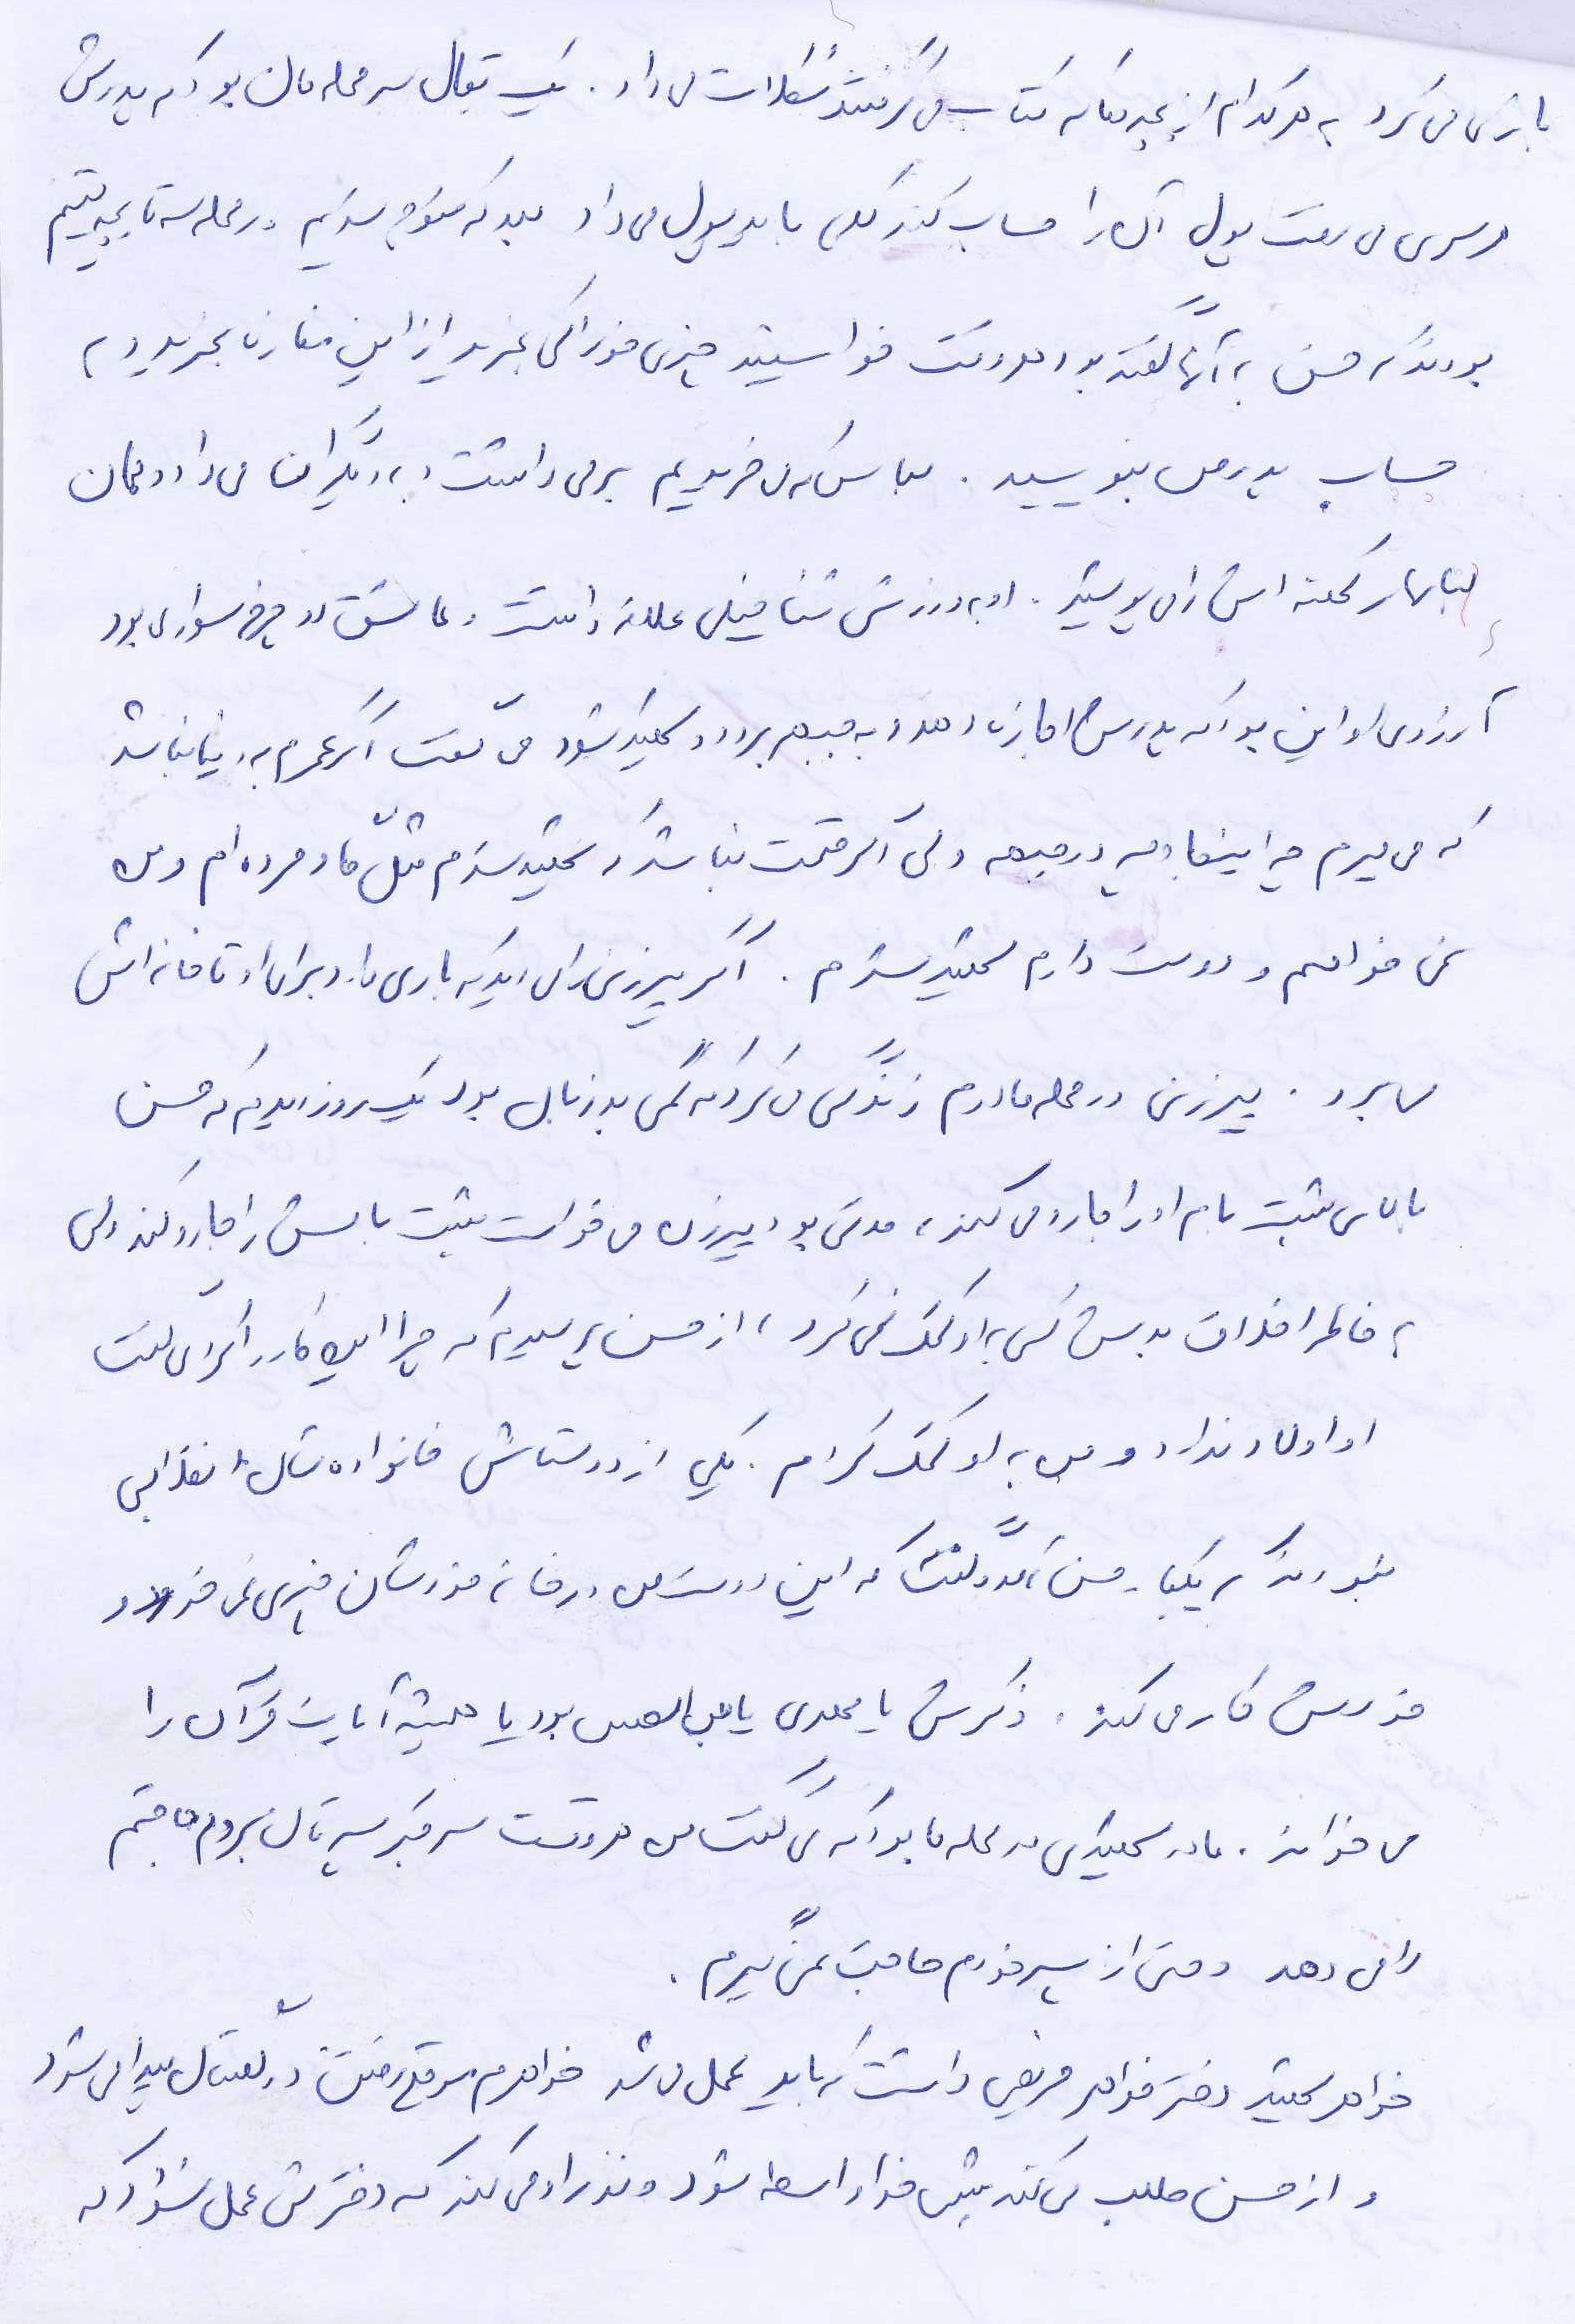 بازی می کرد به هر کدام از بچه ها که کتاب می گرفتند شکلات می داد. یک بقال سر محله مان بود که پدرش
هر سری می رفت پول آن را حساب کند کلی باید پول می داد بعد که متوجه شدیم در محله سه تا بچه یتیم
بودند که حسن به آنها گفته بود هر وقت خواستید چیزی خوراکی بخرید از این مغازه بخرید و به
حساب پدرم بنویسید. لباس که می خریدیم بر می داشت و به دیگران می داد و همان
لباسهای کهنه اش را می پوشید. او به ورزش شنا خیلی علاقه داشت و عاشق دوچرخه سواری بود
آرزوی او این بود که پدرش اجازه دهد و به جبهه برود و شهید شود می گفت اگر عمرم به دنیا نباشد
که می میرم چه اینجا و چه در جبهه ولی اگر قسمت نباشد که شهید شوم مثل مادر مرده ام و من
نمی خواهم و دوست دارم شهید شوم. اگر پیرزنی را می دید که باری دارد برای او تا خانه اش
می برد. پیرزنی در محله مادرم زندگی می کرد که کمی بد زبان بود یک روز دیدیم که حسن
بالای پشت بام او را جارو می کند، مدتی بود پیرزن می خواست پشت بامش را جارو کند ولی
به خاطر اخلاق بدش کسی به او کمک نمی کرد، از حسن پرسیدیم که چرا این کار را کردی گفت
او اولاد ندارد و من به او کمک کردم. یکی از دوستانش خانواده شان انقلابی
نبودند که یکبار حسن آمد و گفت که این دوست من در خانه خودشان چیزی نمی خورد و
خودش کار می کند. ذکرش یا مهدی یا بود یا همیشه آیات قرآن را
می خواند. مادر شهیدی در محله ما بود که می گفت من هر وقت سر قبر پسرتان بروم حاجتم
را می دهد و حتی از پسر خودم حاجت نمی گیرم.
خواهر شهید دختر خواهر مریضی داشت که باید عمل می شد خواهرم موقع رفتن در پیدا می شود
و از حسن طلب می کند پیش خدا واسطه شود و نذر او می کند که دخترش عمل نشود که